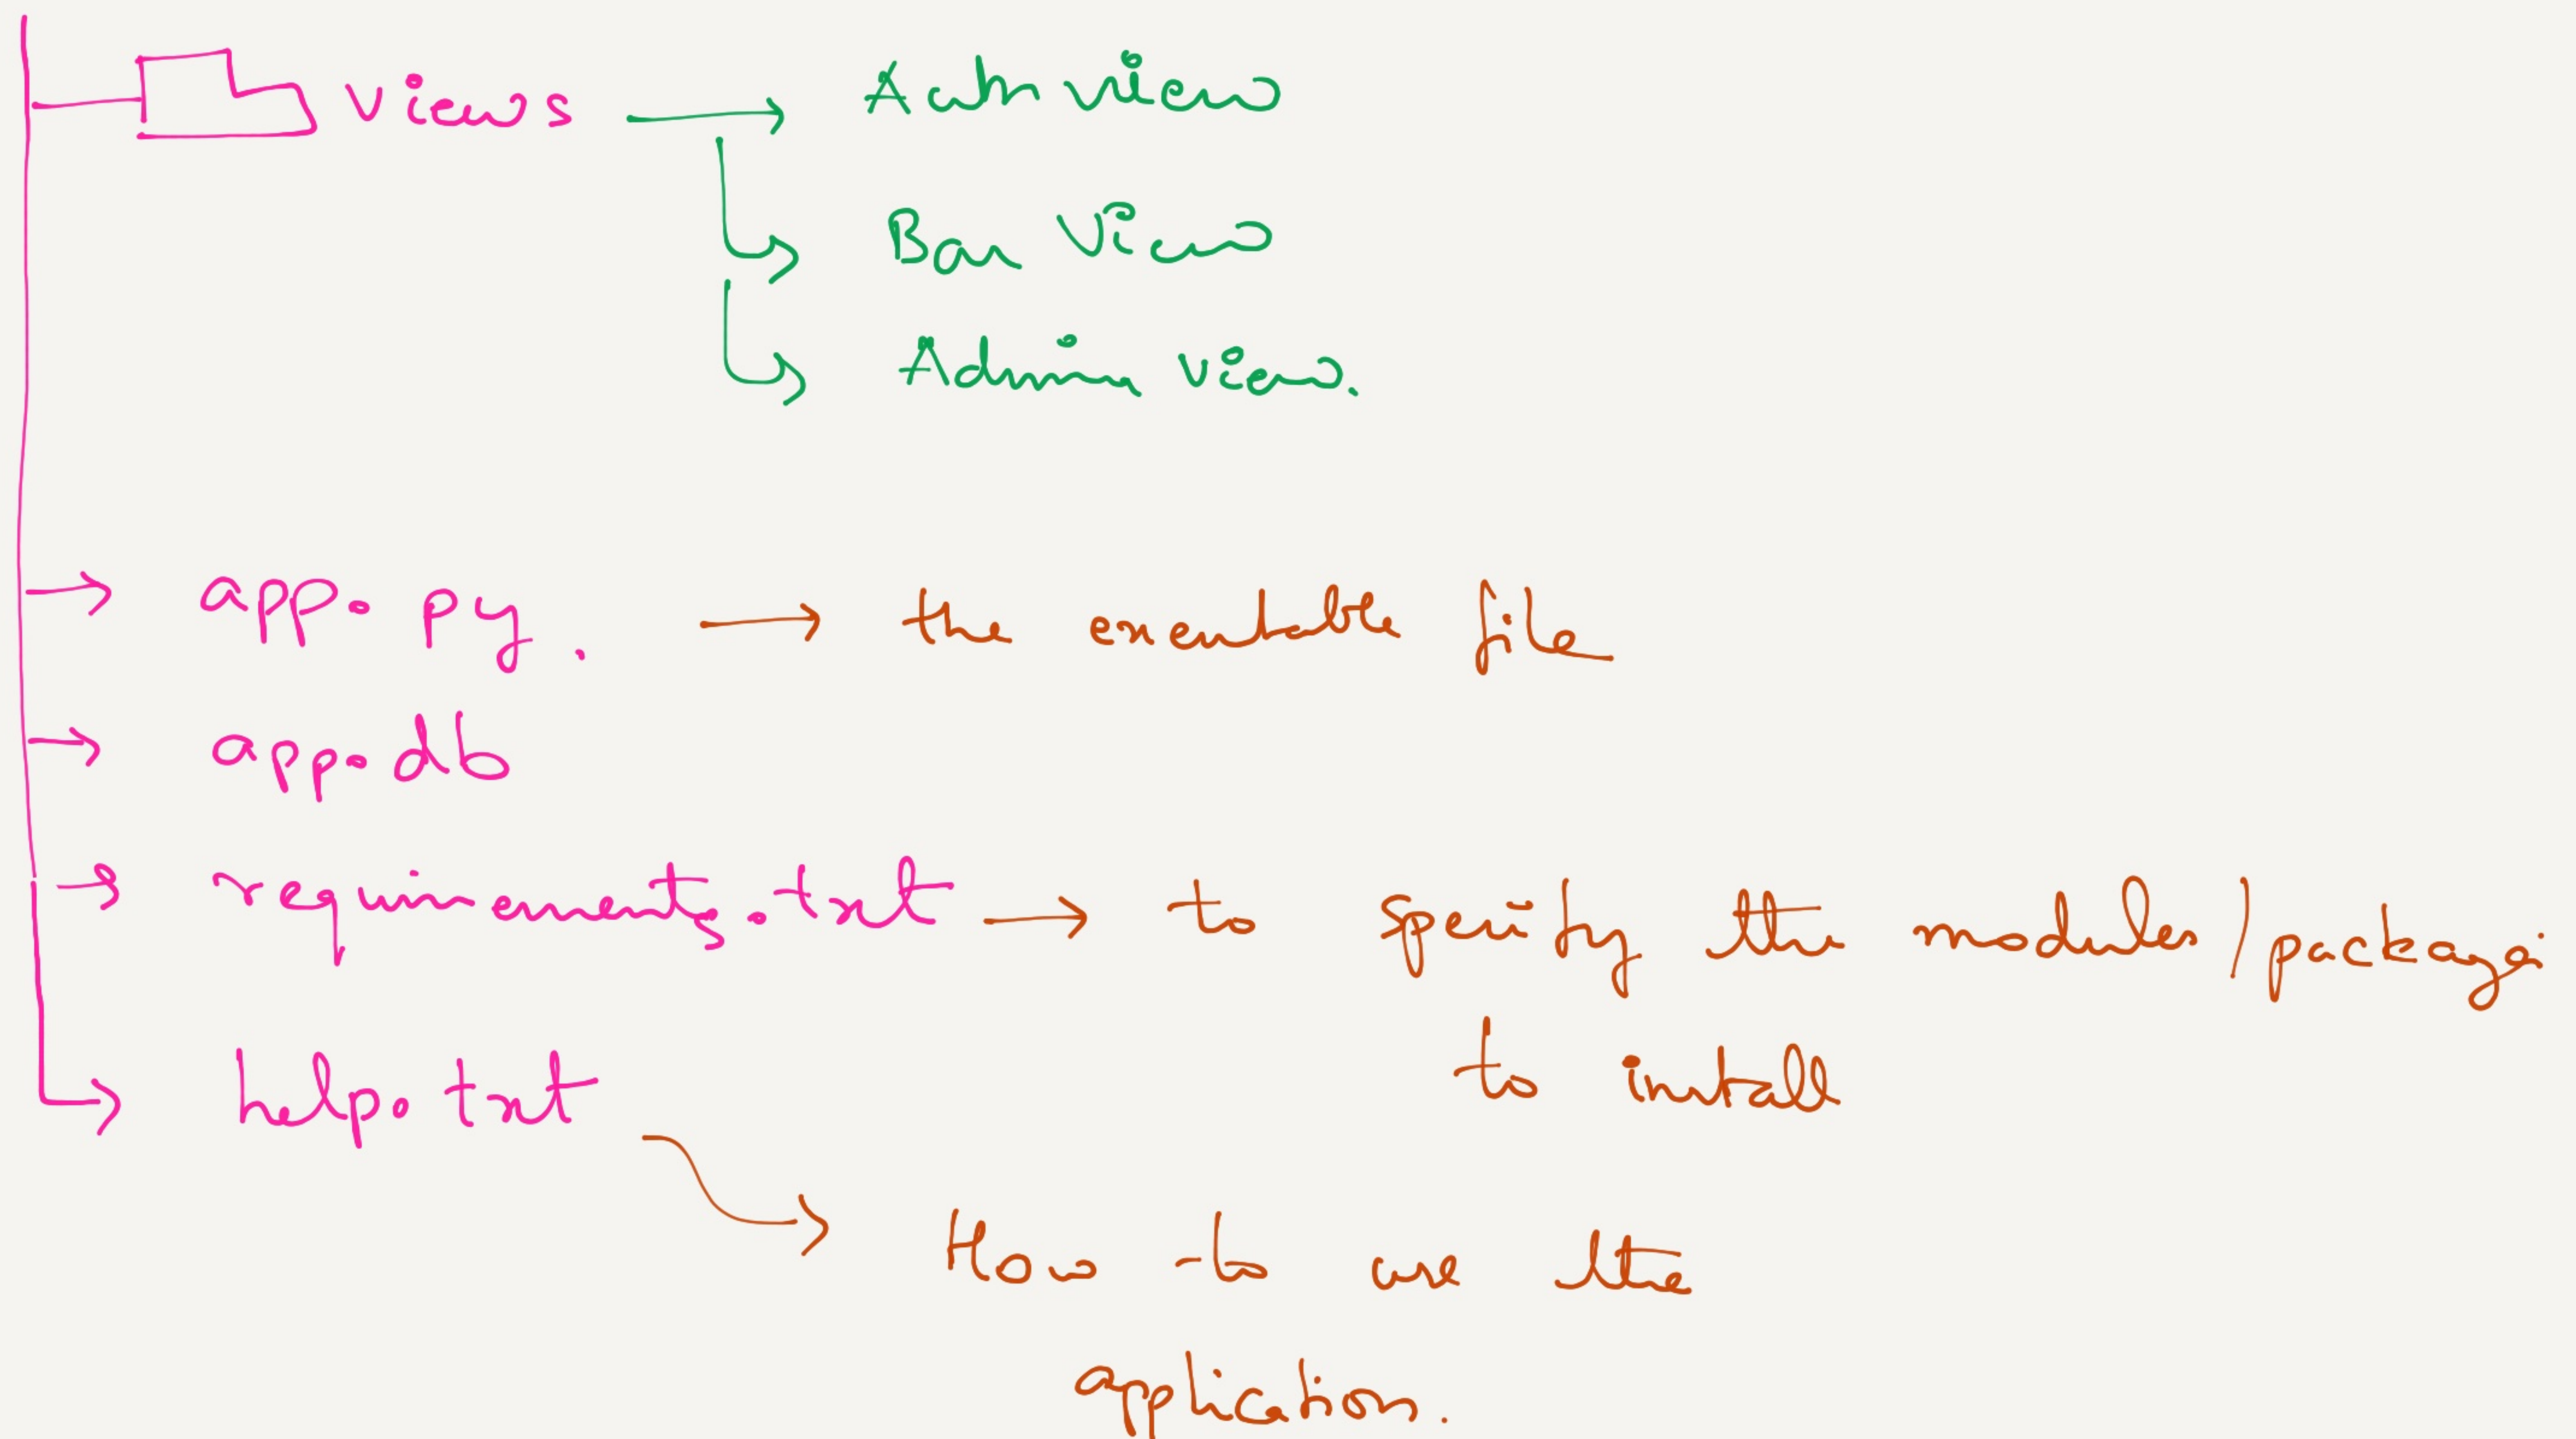 views → Auth view
Bar View
Admin view.
app.py. → the executable file
app.db
requirements.txt → to specify the modules/packages
to install
help.txt
How to use the
application.